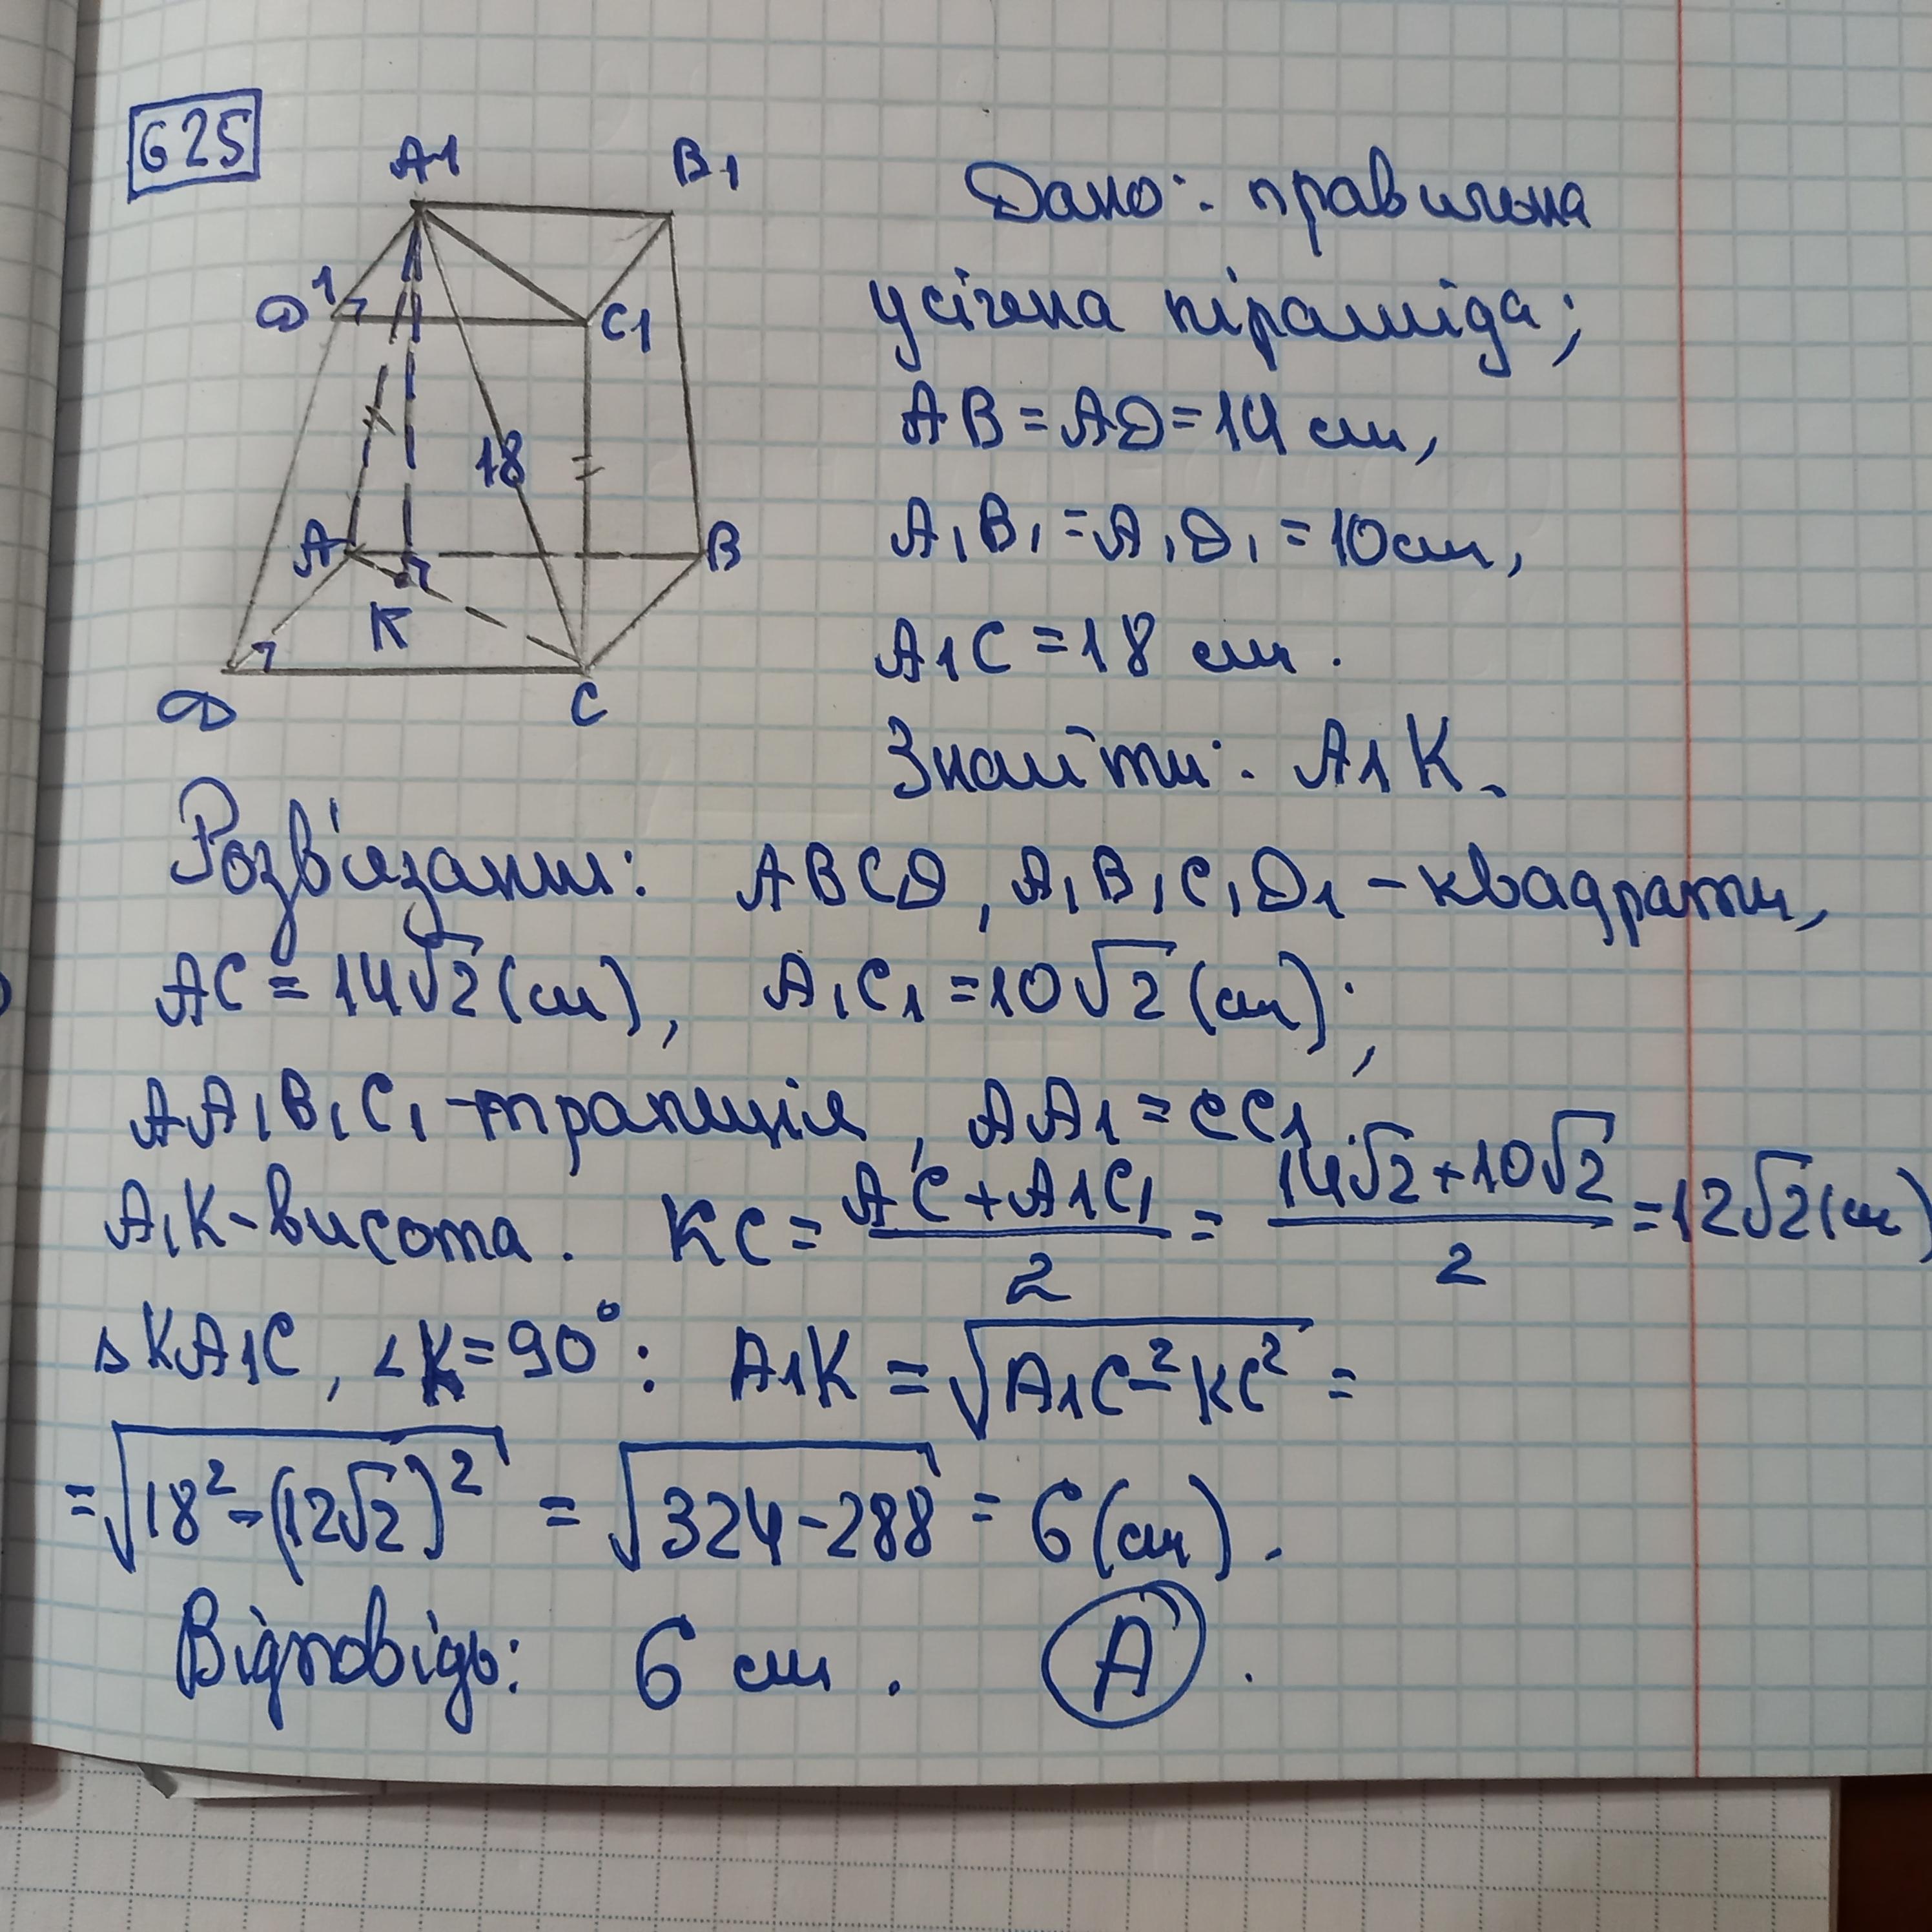 625
A1 B1
D1 C1
18
A B
K
D C
Дано: правильна
усічена піраміда;
AB = AD = 14 см,
A₁B₁ = A₁D₁ = 10 см,
A1C = 18 см.
Знайти: A1K.
Розв'язання: ABCD, A₁B₁C₁D1 - квадрати,
AC = 14√2 (см), A₁C1 = 10√2 (см);
AA₁B₁C₁ - трапеція, AA1 = CC1.
A₁K - висота. KC = (AC + A1C₁)/2 = (14√2 + 10√2)/2 = 12√2 (см)
△KA1C, ∠K = 90°: A1K = √(A1C² - KC²) =
= √(18² - (12√2)²) = √(324 - 288) = 6 (см).
Відповідь: 6 см. А.